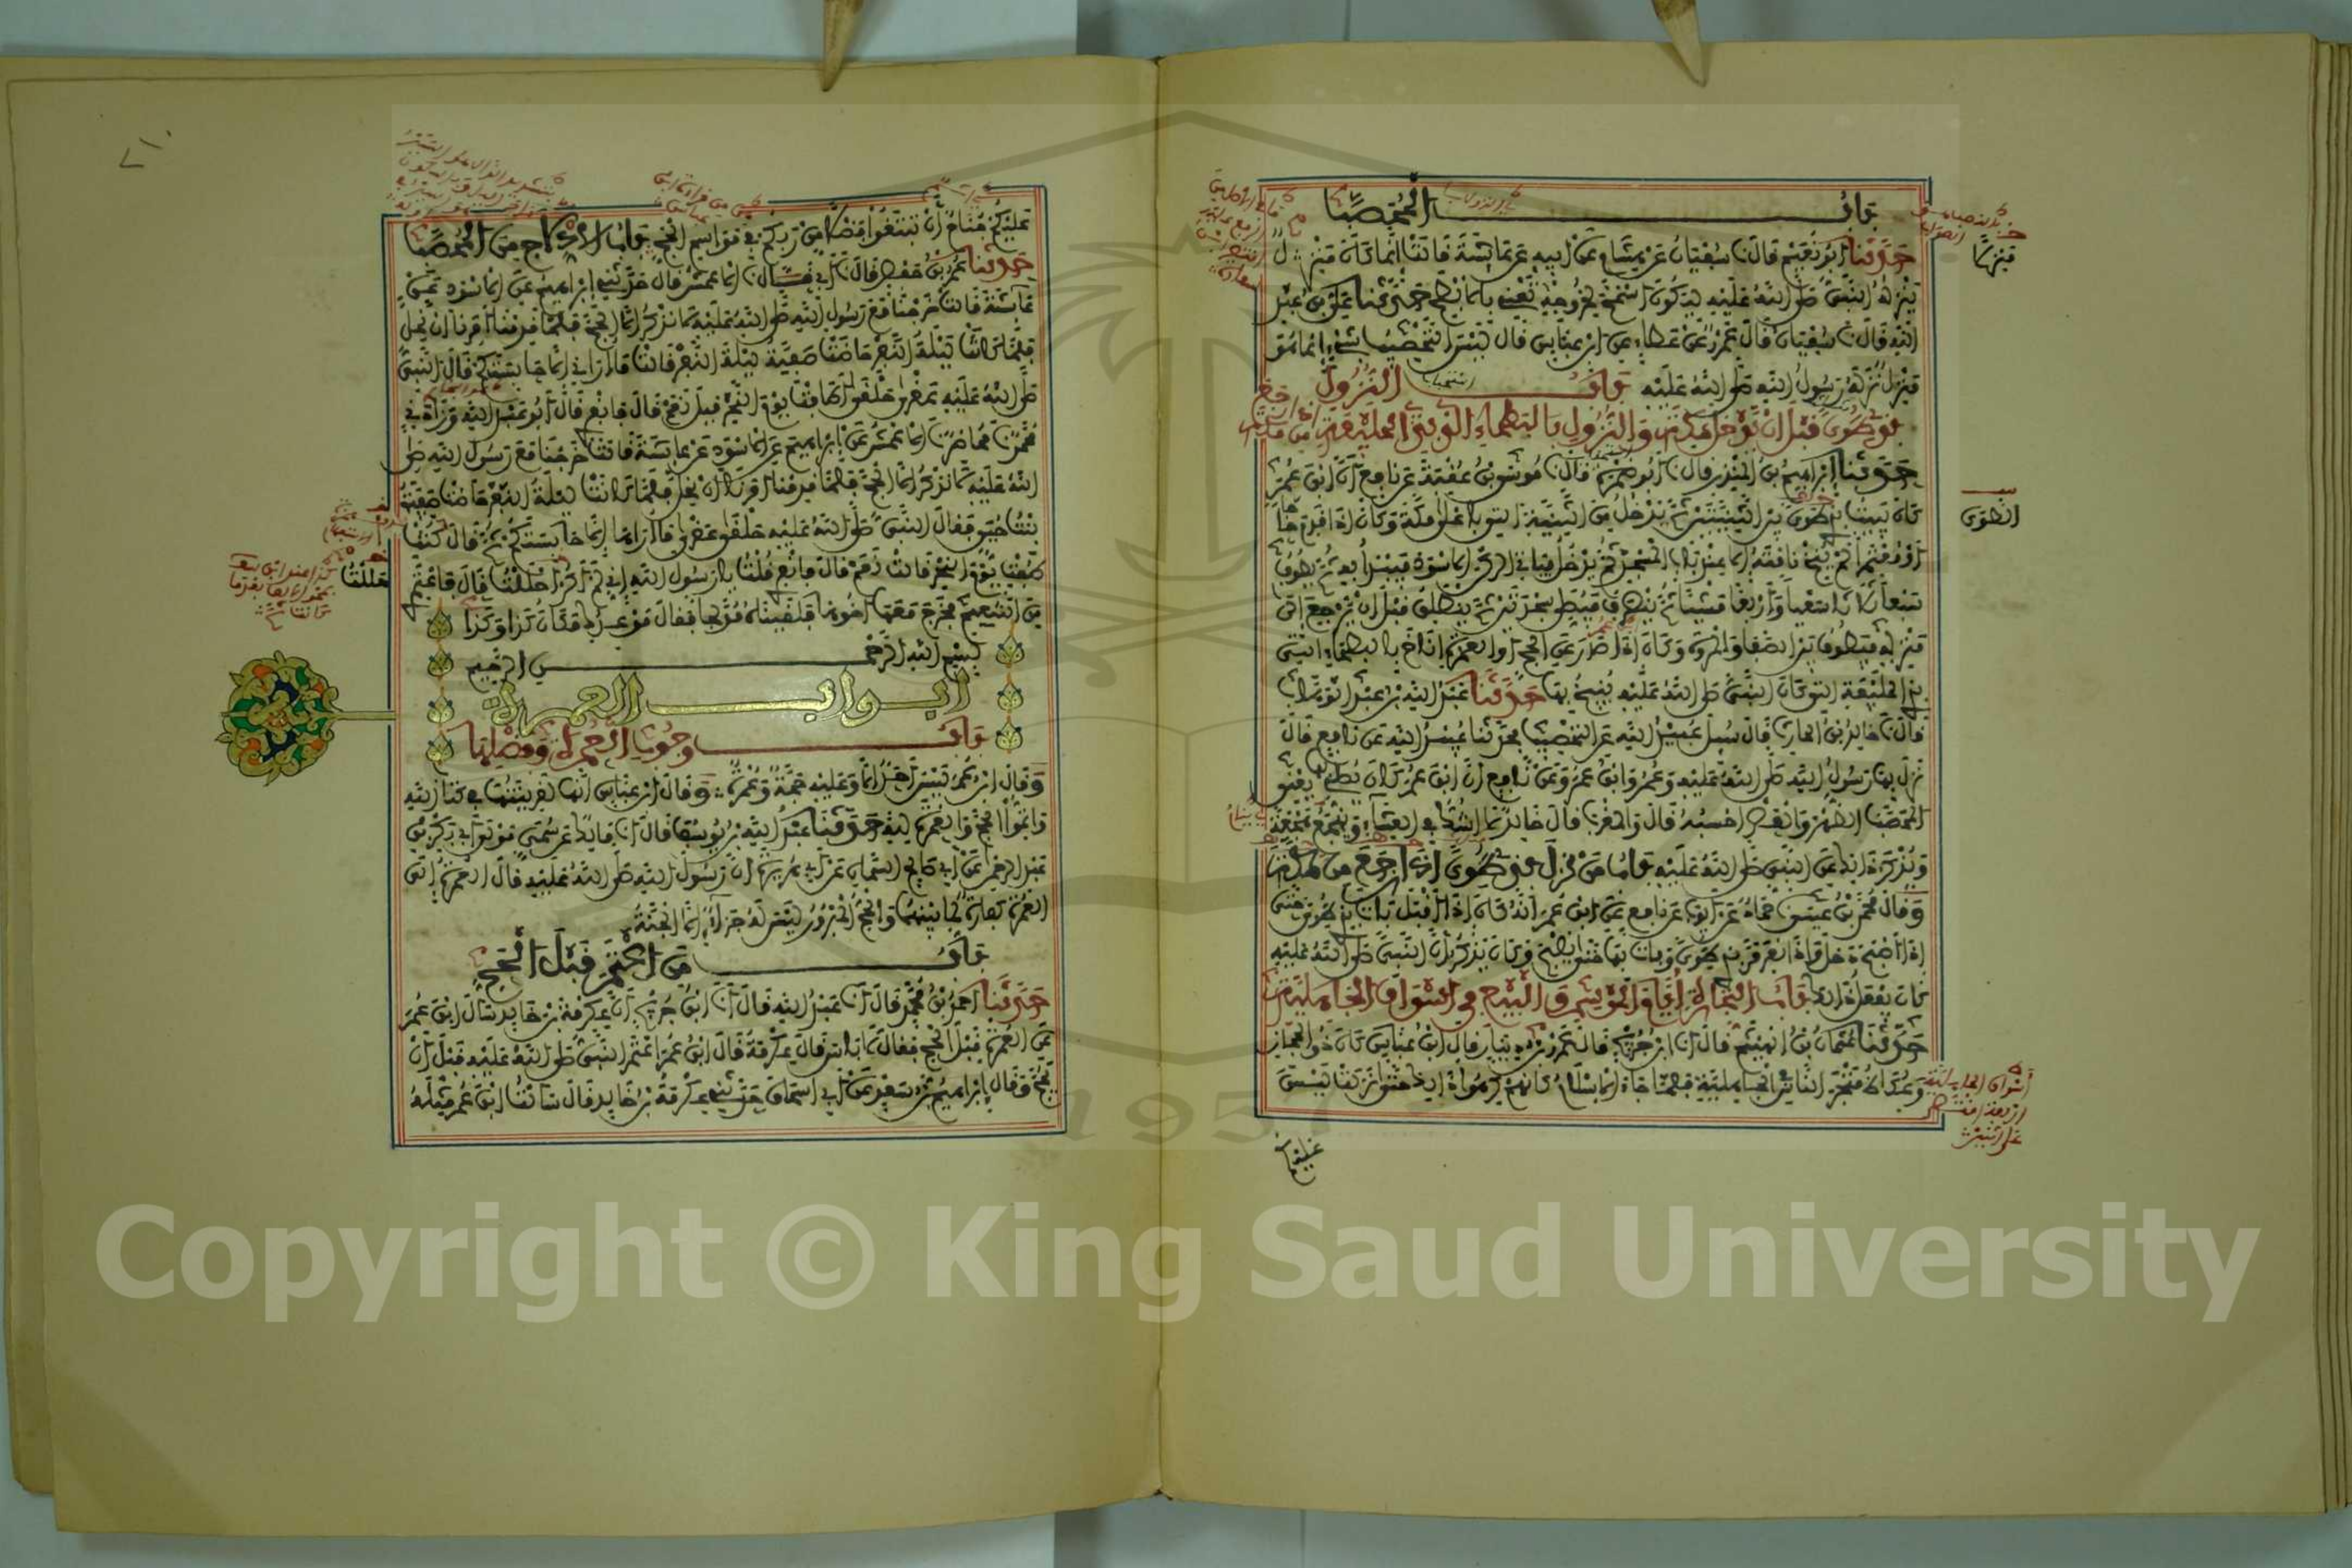 باب المحصب
حدثنا ابو نعيم قال نا سفيان عن هشام عن ابيه عن عائشة قالت انما كان منزل
ينزله النبي صلى الله عليه ليكون اسمح لخروجه تعني بالابطح حدثنا علي بن عبد
الله قال نا سفيان قال عمرو عن عطاء عن ابن عباس قال ليس التحصيب بشيء انما هو
منزل نزله رسول الله صلى الله عليه باب النزول
بذي طوى قبل ان يدخل مكة والنزول بالبطحاء التي بذي الحليفة اذا رجع من مكة
حدثنا ابراهيم بن المنذر قال نا ابو ضمرة قال نا موسى بن عقبة عن نافع ان ابن عمر
كان يبيت بذي طوى بين الثنيتين ثم يدخل من الثنية التي باعلى مكة وكان اذا قدم حاجا
او معتمرا لم ينخ ناقته الا عند باب المسجد ثم يدخل فياتي الركن الاسود فيبدا به ثم يطوف
سبعا ثلاثا سعيا واربعا مشيا ثم ينصرف فيصلي سجدتين ثم ينطلق قبل ان يرجع الى
منزله فيطوف بين الصفا والمروة وكان اذا صدر عن الحج او العمرة اناخ بالبطحاء التي
بذي الحليفة التي كان النبي صلى الله عليه ينيخ بها حدثنا عبد الله بن عبد الوهاب
قال نا خالد بن الحارث قال سئل عبيد الله عن التحصيب فحدثنا عبيد الله عن نافع قال
نزل بها رسول الله صلى الله عليه وعمر وابن عمر وعن نافع ان ابن عمر كان يصلي بها يعني
المحصب الظهر والعصر احسبه قال والمغرب قال خالد لا اشك في العشاء ويهجع هجعة
ويذكر ذلك عن النبي صلى الله عليه باب من نزل بذي طوى اذا رجع من مكة
وقال محمد بن عيسى نا حماد عن ايوب عن نافع عن ابن عمر انه كان اذا اقبل بات بذي طوى حتى
اذا اصبح دخل واذا نفر مر بذي طوى وبات بها حتى يصبح وكان يذكر ان النبي صلى الله عليه
كان يفعل ذلك باب التجارة ايام الموسم والبيع في اسواق الجاهلية
حدثنا عثمان بن الهيثم قال انا ابن جريج قال عمرو بن دينار قال ابن عباس كان ذو المجاز
وعكاظ متجر الناس في الجاهلية فلما جاء الاسلام كانهم كرهوا ذلك حتى نزلت ليس
منزلا
الطوى
اسواق الجاهلية
اربعة
عليكم
عليكم جناح ان تبتغوا فضلا من ربكم في مواسم الحج باب الادلاج من المحصب
حدثنا عمر بن حفص قال نا ابي قال نا الاعمش قال حدثني ابراهيم عن الاسود عن
عائشة قالت خرجنا مع رسول الله صلى الله عليه لا نذكر الا الحج فلما قدمنا امرنا ان نحل
فلما كانت ليلة النفر حاضت صفية ليلة النفر فقالت ما اراني الا حابستكم قال النبي
صلى الله عليه عقرى حلقى اطافت يوم النحر قيل نعم قال فانفري قال ابو عبد الله وزادني
محمد نا محاضر نا الاعمش عن ابراهيم عن الاسود عن عائشة قالت خرجنا مع رسول الله صلى
الله عليه لا نذكر الا الحج فلما قدمنا امرنا ان نحل فلما كانت ليلة النفر حاضت صفية
بنت حيي فقال النبي صلى الله عليه حلقى عقرى ما اراها الا حابستكم ثم قال كنت
طفت يوم النحر قالت نعم قال فانفري قلت يا رسول الله اني لم اكن حللت قال فاعتمري
من التنعيم فخرج معها اخوها فلقيناه مدلجا فقال موعدك مكان كذا وكذا
حللت
بسم الله الرحمن الرحيم
ابواب العمرة
باب وجوب العمرة وفضلها
وقال ابن عمر ليس احد الا وعليه حجة وعمرة وقال ابن عباس انها لقرينتها في كتاب الله
واتموا الحج والعمرة لله حدثنا عبد الله بن يوسف قال انا مالك عن سمي مولى ابي بكر بن
عبد الرحمن عن ابي صالح السمان عن ابي هريرة ان رسول الله صلى الله عليه قال العمرة الى
العمرة كفارة لما بينهما والحج المبرور ليس له جزاء الا الجنة
باب من اعتمر قبل الحج
حدثنا احمد بن محمد قال انا عبد الله قال انا ابن جريج ان عكرمة بن خالد سال ابن عمر
عن العمرة قبل الحج فقال لا باس قال عكرمة قال ابن عمر اعتمر النبي صلى الله عليه قبل ان
يحج وقال ابراهيم بن سعد عن ابن اسحاق حدثني عكرمة بن خالد قال سالت ابن عمر مثله
Copyright © King Saud University
1957